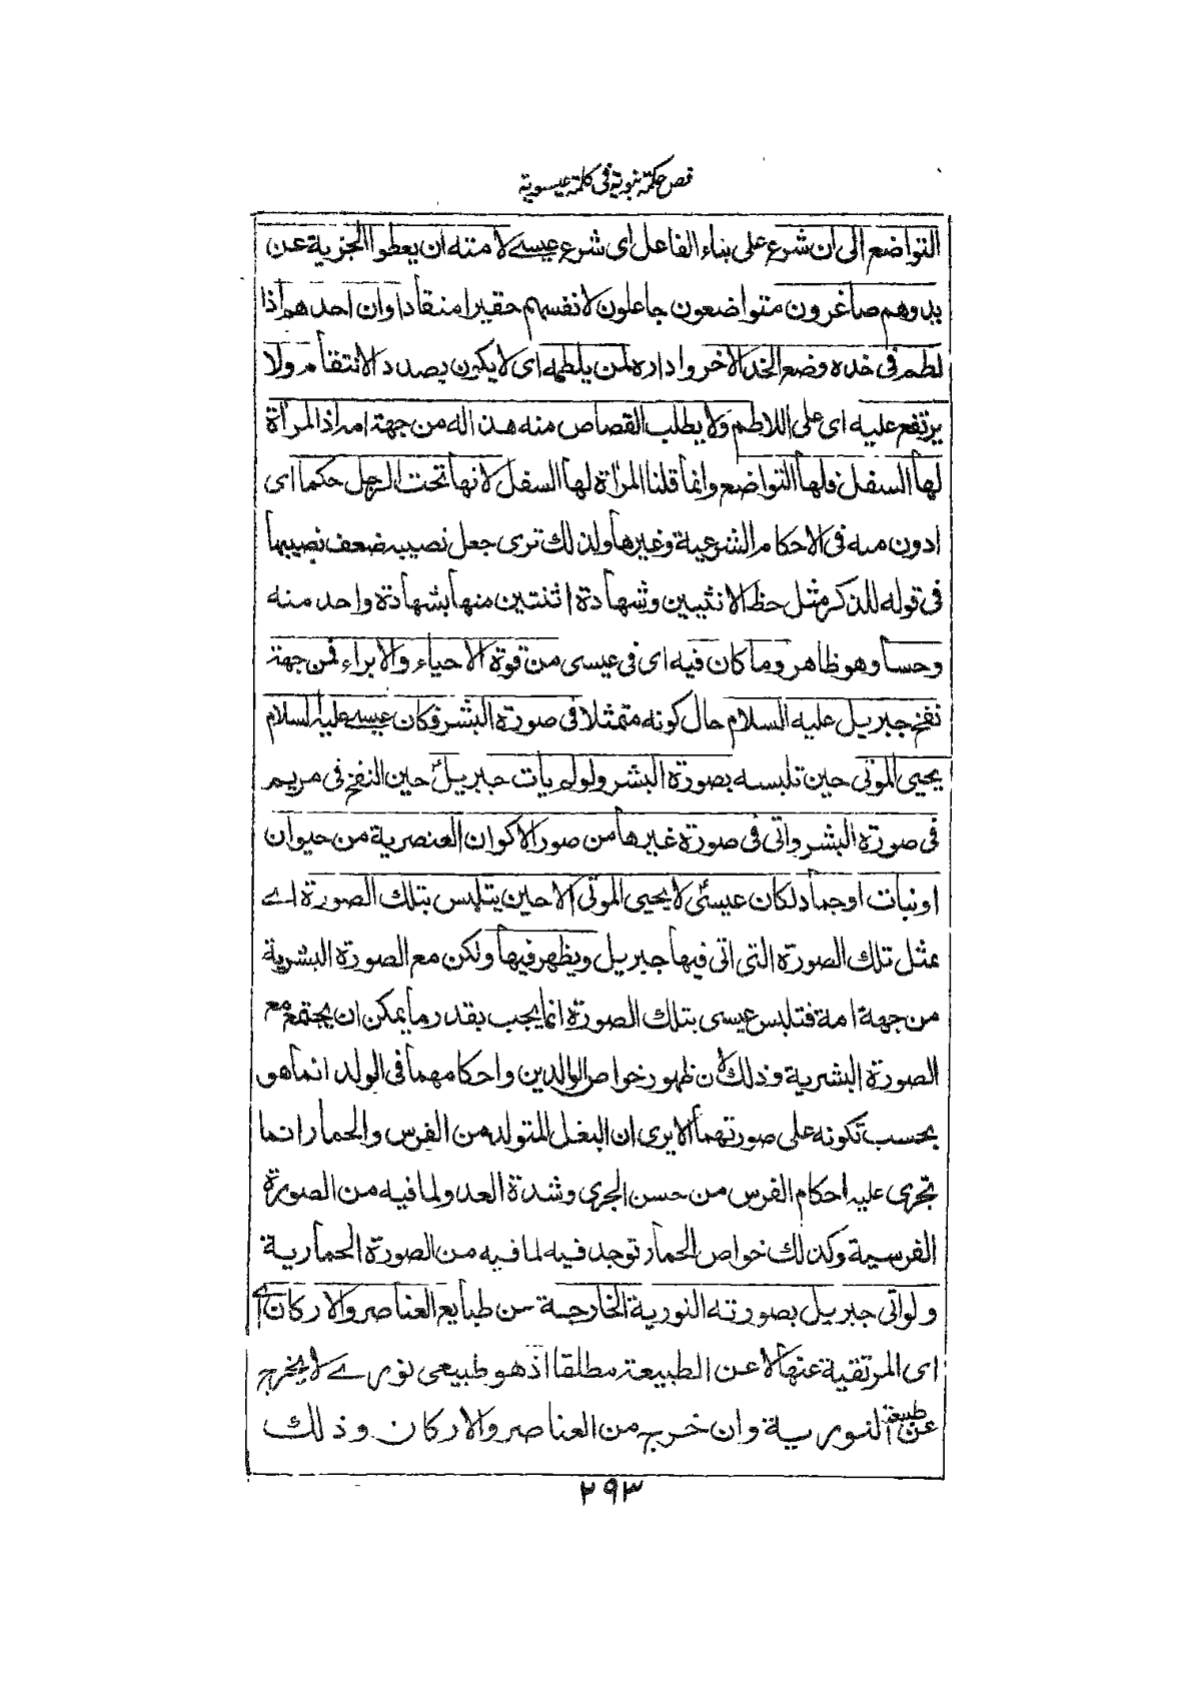 فص حكمة نبوية في كلمة عيسوية
التواضع الى ان شرع على بناء الفاعل اى شرع عيسے لامته ان يعطوا الجزية عن
يد وهم صاغرون متواضعون جاعلون لانفسهم حقيرا منقادا وان احدهم اذا
لطم فى خده وضع الخد الاخر واداره لمن يلطمه اى لا يكون بصدد الانتقام ولا
يرتفع عليه اى على اللاطم ولا يطلب القصاص منه هذا له من جهة امه اذ المرأة
لها السفل فلها التواضع وانما قلنا المرأة لها السفل لانها تحت الرجل حكما اى
ادون منه فى الاحكام الشرعية وغيرها ولذلك ترى جعل نصيبه ضعف نصيبها
فى قوله للذكر مثل حظ الانثيين وشهادة اثنتين منها بشهادة واحد منه
وحسا وهو ظاهر وما كان فيه اى فى عيسى من قوة الاحياء والابراء فمن جهة
نفخ جبريل عليه السلام حال كونه متمثلا فى صورة البشر فكان عيسے عليه السلام
يحيى الموتى حين تلبسه بصورة البشر ولو لم يات جبريلؑ حين النفخ فى مريم
فى صورة البشر واتى فى صورة غيرها من صور الاكوان العنصرية من حيوان
او نبات او جماد لكان عيسىؑ لا يحيى الموتى الا حين يتلبس بتلك الصورة اے
مثل تلك الصورة التى اتى فيها جبريل ويظهر فيها ولكن مع الصورة البشرية
من جهة امه فتلبس عيسى بتلك الصورة انما يجب بقدر ما يمكن ان يجتمع مع
الصورة البشرية وذلك لان ظهور خواص الوالدين واحكامهما فى الولد انما هو
بحسب تكونه على صورتهما الا يرى ان البغل المتولد من الفرس والحمار انما
تجرى عليه احكام الفرس من حسن الجرى وشدة العدو لما فيه من الصورة
الفرسية وكذلك خواص الحمار توجد فيه لما فيه من الصورة الحمارية
ولو اتى جبريل بصورته النورية الخارجة عن طبايع العناصر والاركان
اى المرتقية عنها لا عن الطبيعة مطلقا اذ هو طبيعى نورے لا يخرج
عن طبيعة النورية وان خرج من العناصر والاركان وذلك
٢٩٣